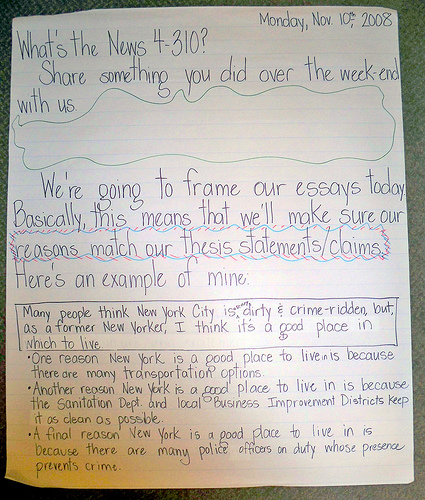 Monday, Nov. 10th, 2008
What's the News 4-310?
Share something you did over the week-end
with us.
We're going to frame our essays today.
Basically, this means that we'll make sure our
reasons match our thesis statements/claims.
Here's an example of mine:
Many people think New York City is dirty & crime-ridden, but,
as a former New Yorker, I think it's a good place in
which to live.
• One reason New York is a good place to live in is because
there are many transportation options.
• Another reason New York is a good place to live in is because
the Sanitation Dept. and local Business Improvement Districts keep
it as clean as possible.
• A final reason New York is a good place to live in is
because there are many police officers on duty whose presence
prevents crime.